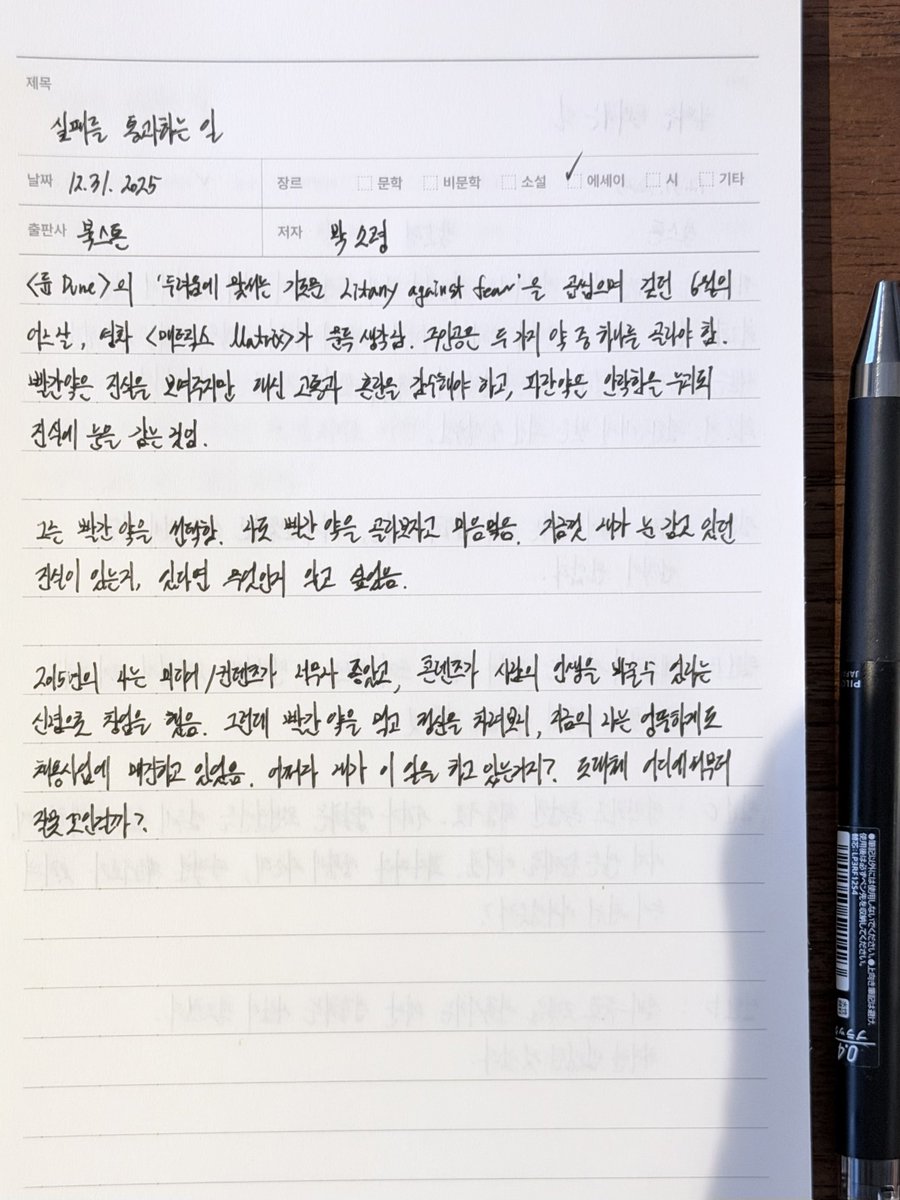 제목
실패를 통과하는 일
날짜 12.31.2025 장르 문학 비문학 소설 에세이 시 기타
출판사 북스톤 저자 박소령
<듄 Dune>의 '두려움에 맞서는 기도문 Litany against fear'을 곱씹으며 걷던 6월의
어느 날, 영화 <매트릭스 Matrix>가 문득 생각남. 주인공은 두 가지 약 중 하나를 골라야 함.
빨간약은 진실을 보여주지만 대신 고통과 혼란을 감수해야 하고, 파란약은 안락함을 누리되
진실에 눈을 감는 것임.
그는 빨간 약을 선택함. 나도 빨간 약을 골라보자고 마음먹음. 지금껏 내가 눈 감고 있던
진실이 있는지, 있다면 무엇인지 알고 싶었음.
2015년의 나는 미디어/컨텐츠가 너무나 좋았고, 콘텐츠가 사람의 인생을 바꿀 수 있다는
신념으로 창업을 했음. 그런데 빨간 약을 먹고 정신을 차려보니, 지금의 나는 엉뚱하게도
채용사업에 매진하고 있었음. 어쩌다 내가 이 일을 하고 있는거지? 도대체 어디에서부터
잘못 꼬인걸까?
PILOT
JAPAN
●筆記以外には使用しないでください。●上向き筆記は避け、
使用後は必ずペン先を収納してください。
替芯:LP3RF12S4
0.4
ブラック